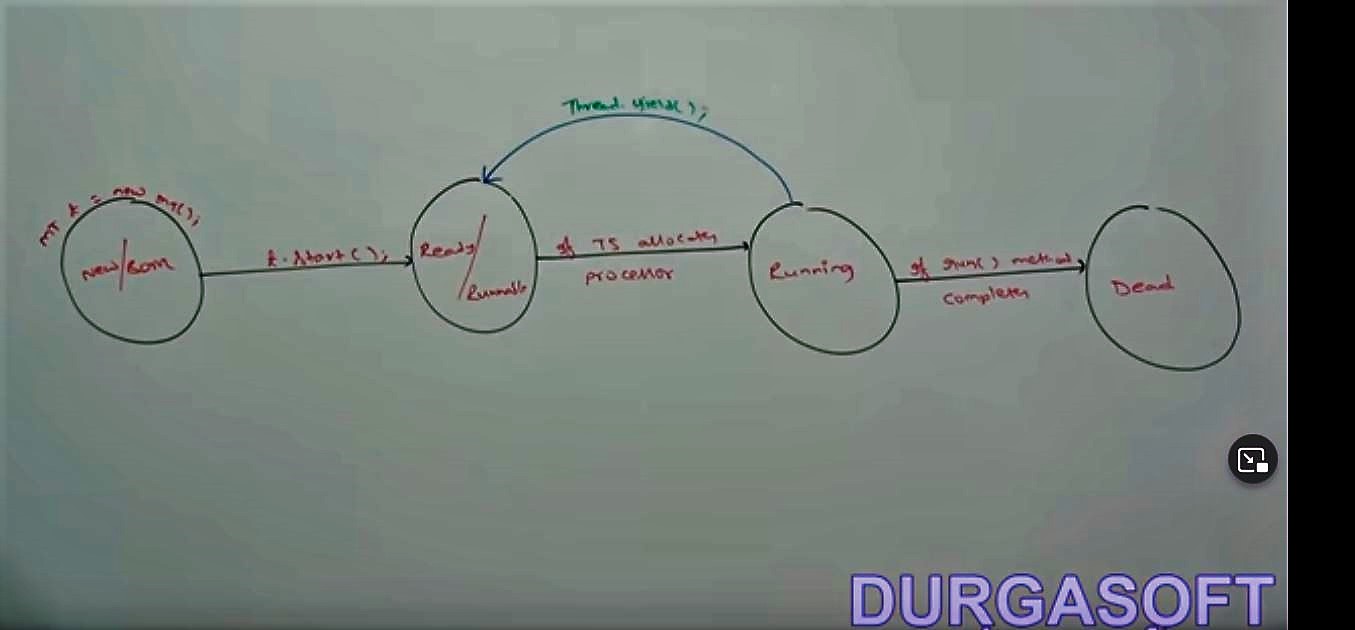 Thread.yield();
MT t = new MT();
New/Born
t.start();
Ready/
Runnable
if TS allocates
processor
Running
if run() method
completes
Dead
DURGASOFT